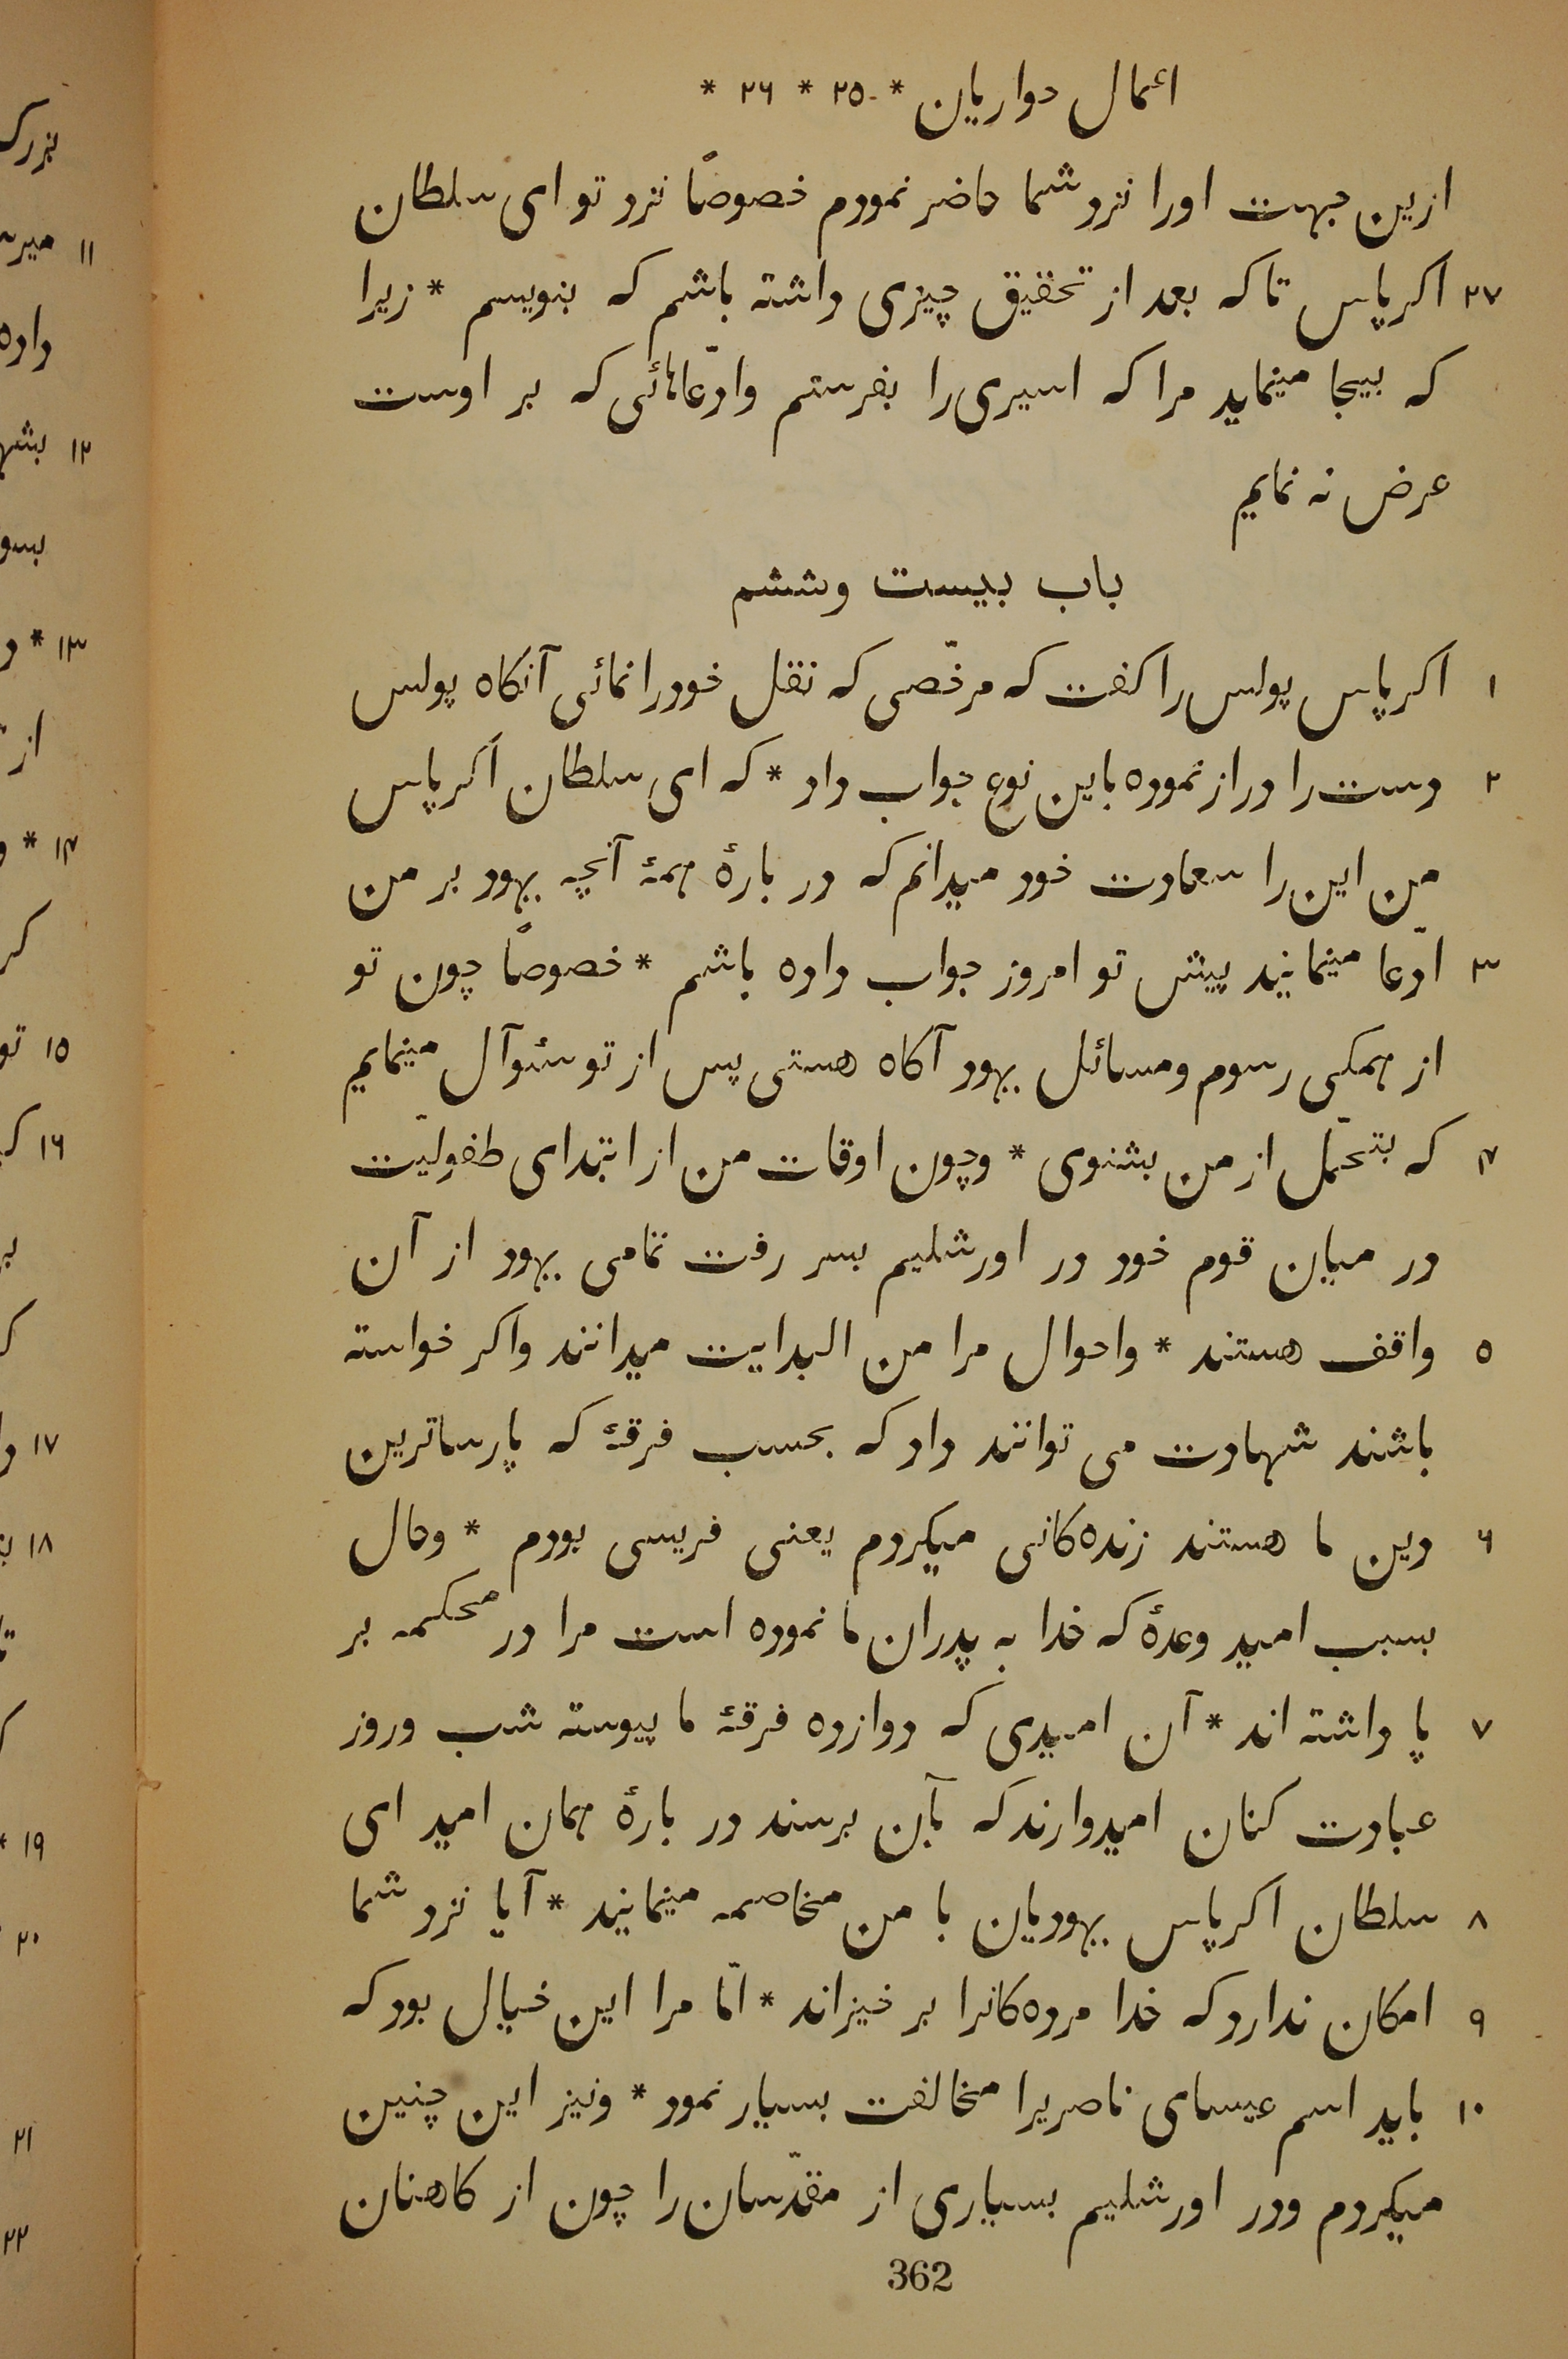 اعمال حواریان * ۲۵ * ۲۶ *
ازین جهت اورا نزد شما حاضر نمودم خصوصاً نزد تو ای سلطان
۲۷ اکرپاس تا که بعد از تحقیق چیزی داشته باشم که بنویسم * زیرا
که بیجا مینماید مرا که اسیری را بفرستم وادّعاهائی که بر اوست
عرض نه نمایم
باب بیست وششم
۱ اکرپاس پولس را کفت که مرخّصی که نقل خودرا نمائی آنکاه پولس
۲ دست را دراز نموده باین نوع جواب داد * که ای سلطان اکرپاس
من این را سعادت خود میدانم که در بارهٔ همهٔ آنچه یهود بر من
۳ ادّعا مینمایند پیش تو امروز جواب داده باشم * خصوصاً چون تو
از همکی رسوم ومسائل یهود آکاه هستی پس از تو سئوآل مینمایم
۴ که بتحمّل از من بشنوی * وچون اوقات من از ابتدای طفولیّت
در میان قوم خود در اورشلیم بسر رفت تمامی یهود از آن
۵ واقف هستند * واحوال مرا من البدایت میدانند واکر خواسته
باشند شهادت می توانند داد که بحسب فرقهٔ که پارساترین
۶ دین ما هستند زنده‌کانی میکردم یعنی فریسی بودم * وحال
بسبب امید وعدهٔ که خدا به پدران ما نموده است مرا در محکمه بر
۷ پا داشته اند * آن امیدی که دوازده فرقهٔ ما پیوسته شب وروز
عبادت کنان امیدوارند که بآن برسند در بارهٔ همان امید ای
۸ سلطان اکرپاس یهودیان با من مخاصمه مینمایند * آیا نزد شما
۹ امکان ندارد که خدا مرده‌کانرا بر خیزاند * امّا مرا این خیال بود که
۱۰ باید اسم عیسای ناصریرا مخالفت بسیار نمود * ونیز این چنین
میکردم ودر اورشلیم بسیاری از مقدّسان را چون از کاهنان
362
بزرک
۱۱
داده
۱۲
بسو
۱۳ * و
از
۱۴ *
۱۵ تو
۱۶
۱۷
۱۸
۱۹ *
۲۰
۲۱
۲۲